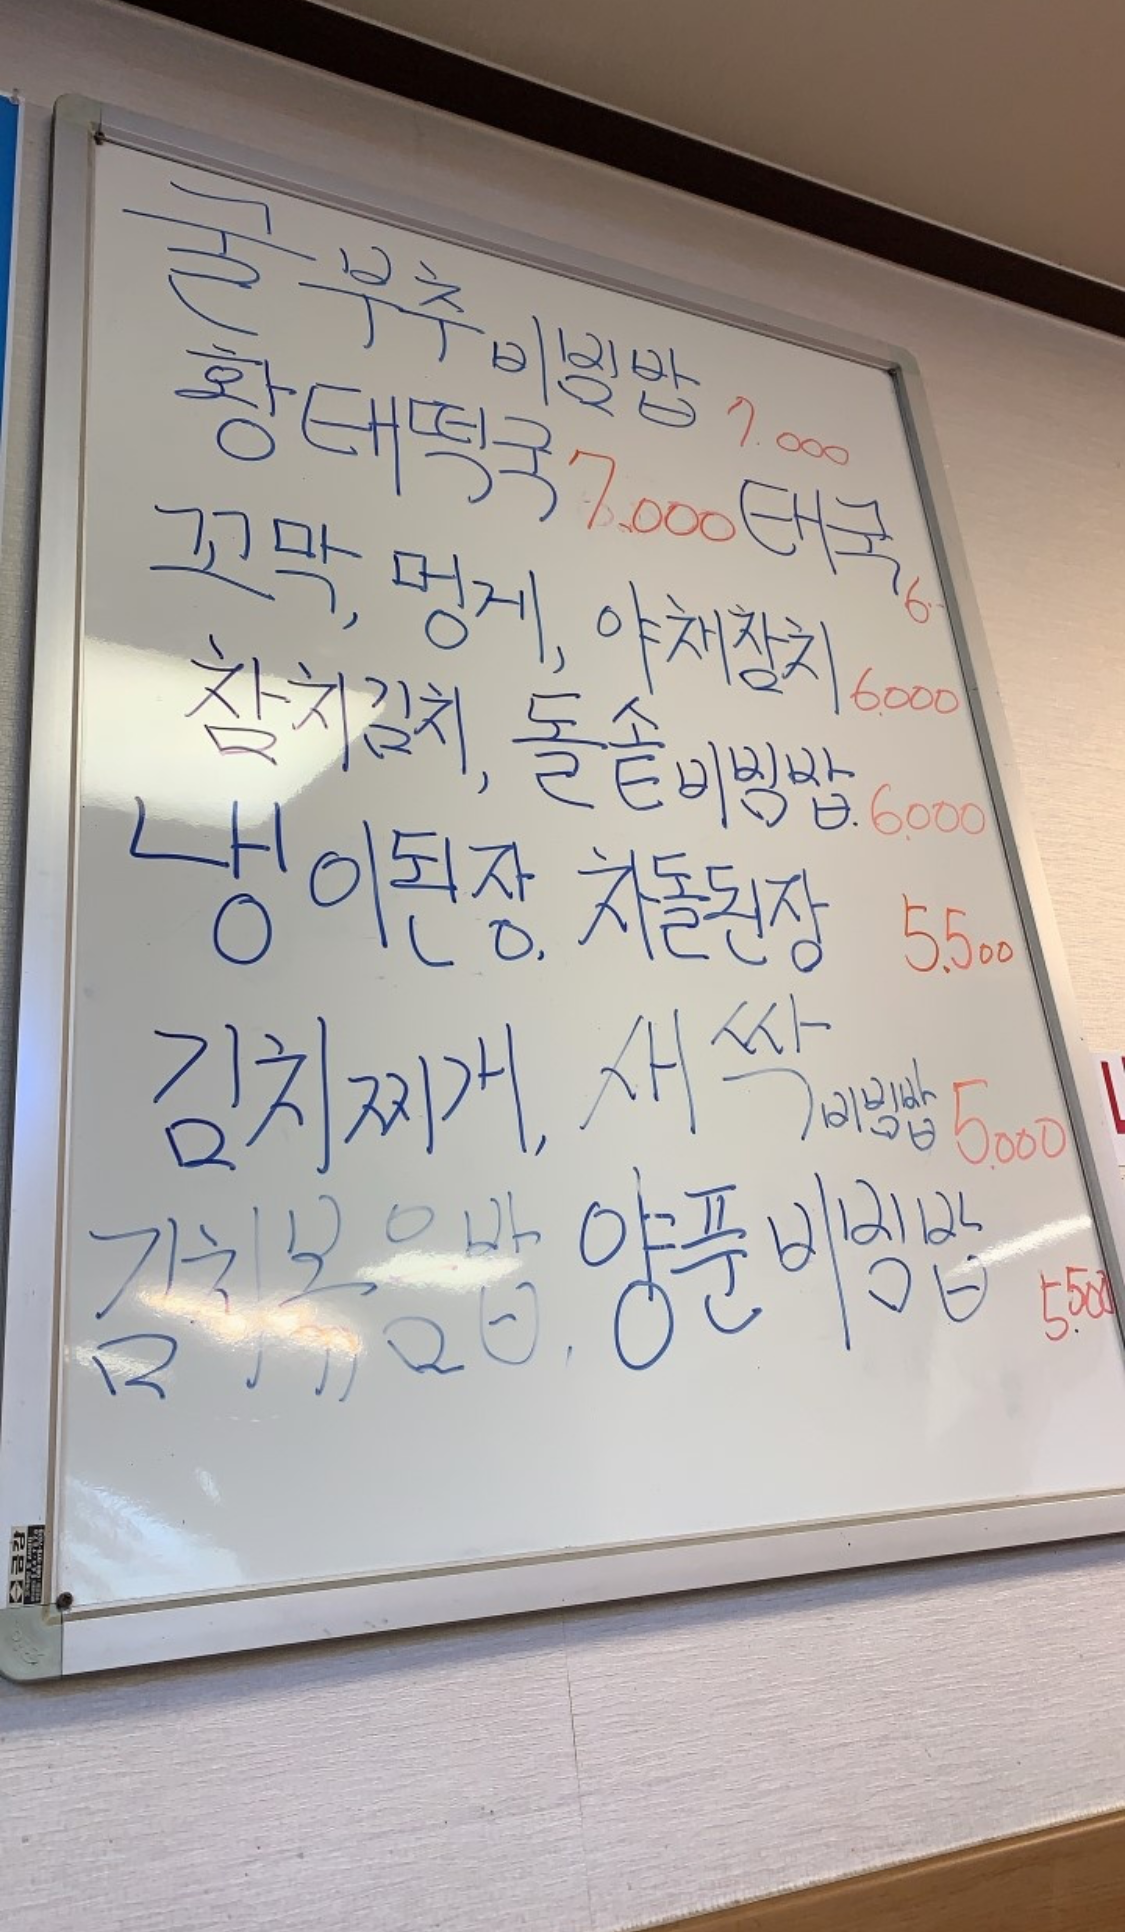 굴부추비빔밥 7.000
황태떡국 7.000 태국 6.-
꼬막, 멍게, 야채참치 6.000
참치김치, 돌솥비빔밥. 6.000
냉이된장. 차돌된장 5.500
김치찌개, 새싹비빔밥 5.000
김치볶음밥. 양푼비빔밥 5.500